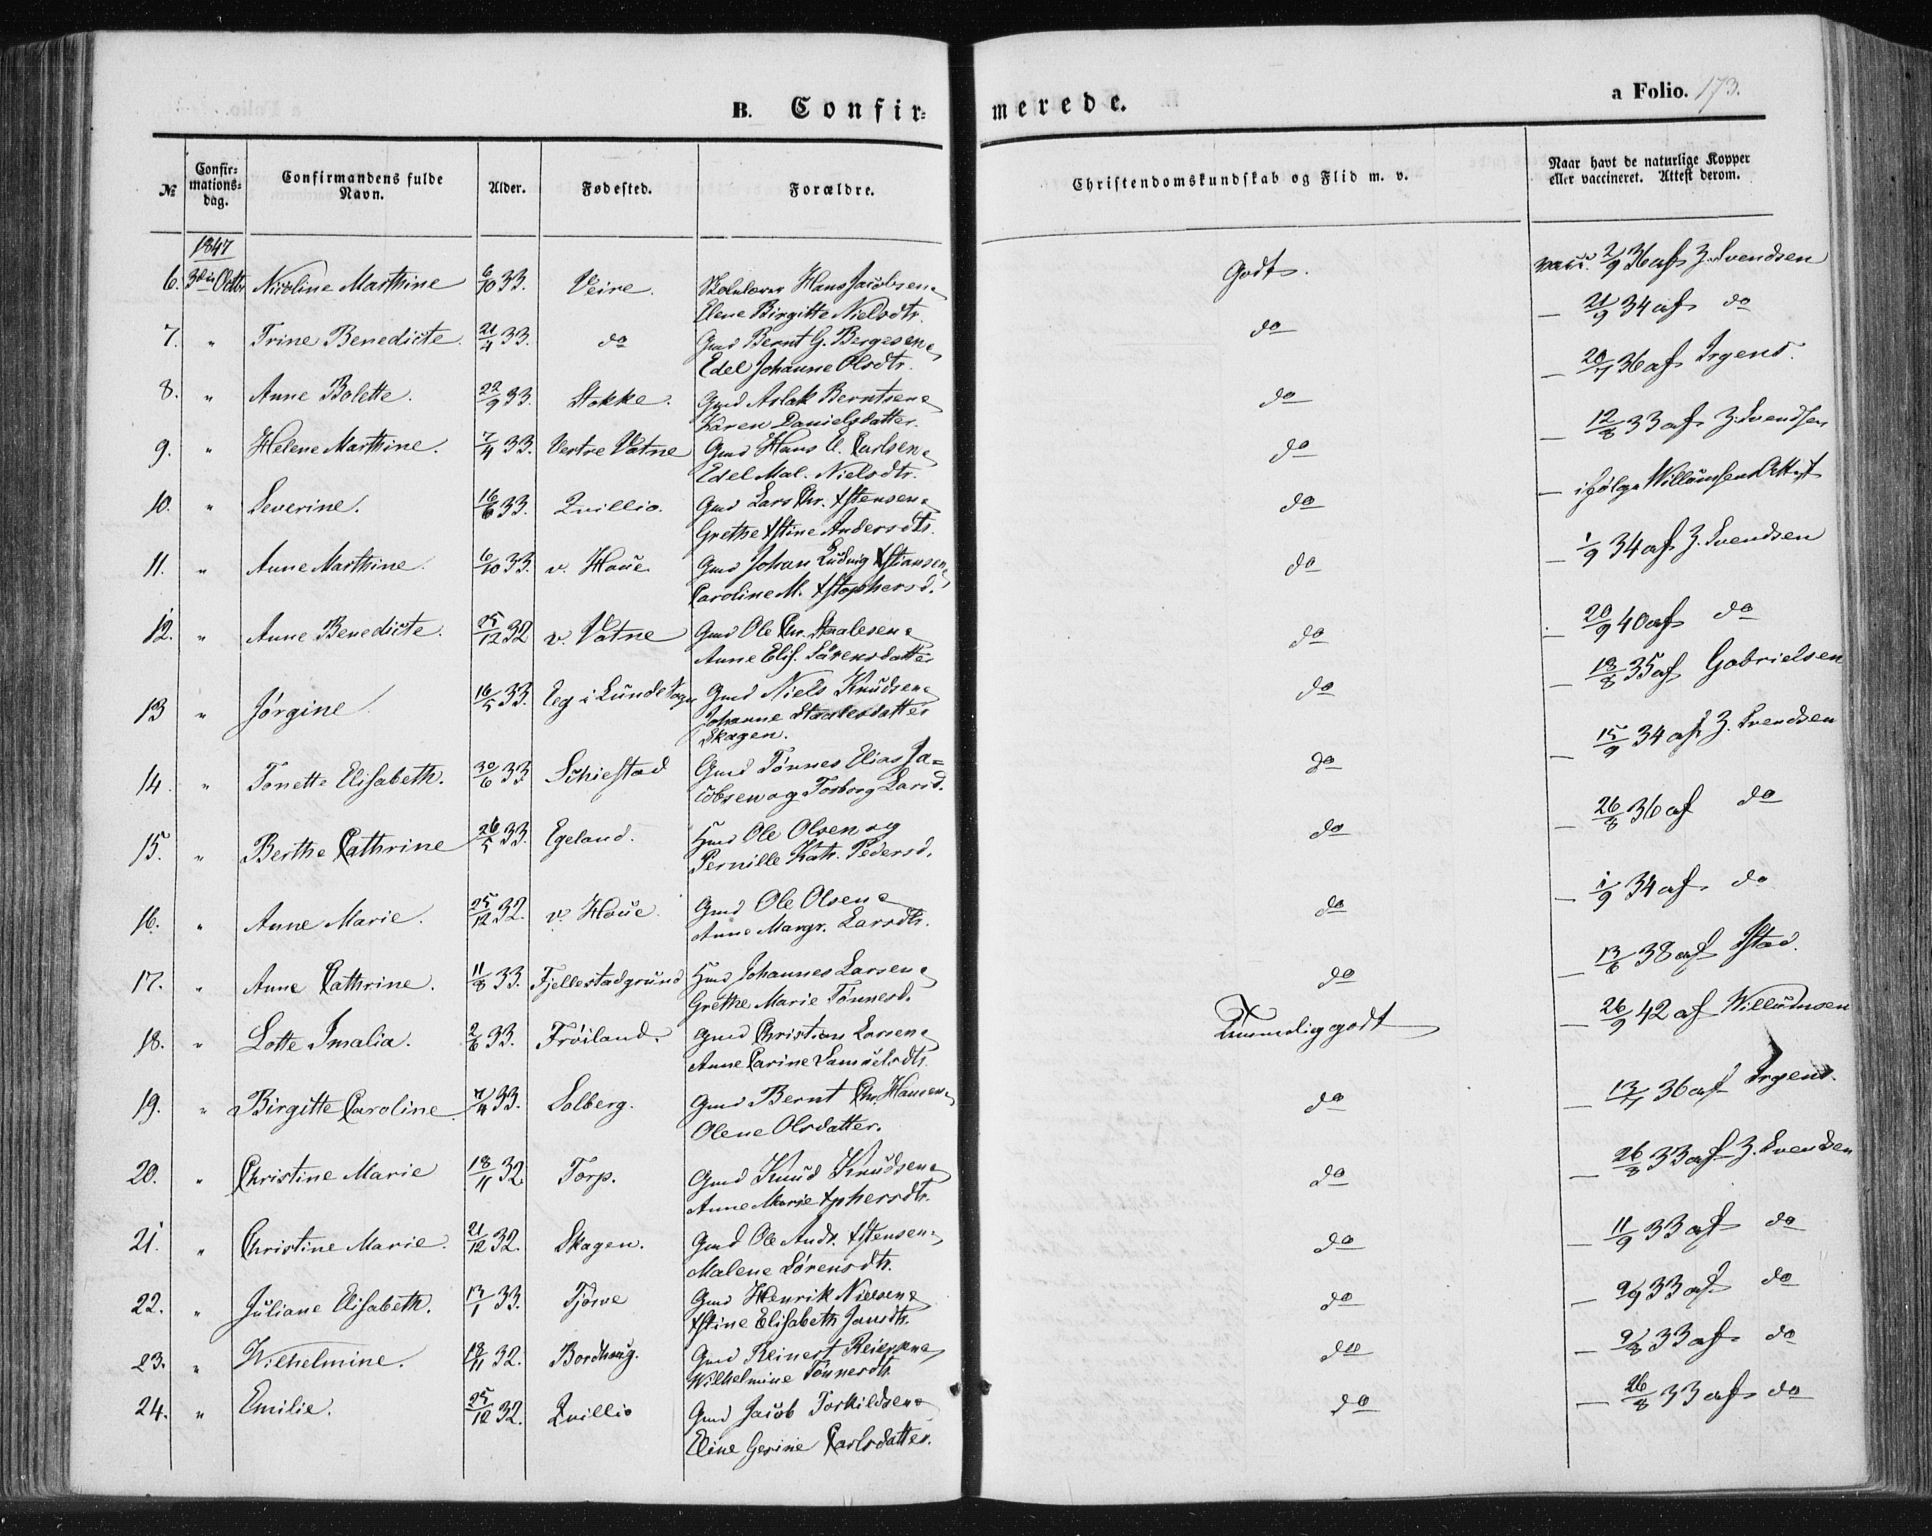 B. Confir-
merede.
a Folio. 173.
№
Confir-
mations-
dag.
Confirmandens fulde
Navn.
Alder.
Fødested.
Forældre.
Christendomskundskab og Flid m. v.
Naar havt de naturlige Kopper
eller vaccineret. Attest derom.
1847
6. 3die Octbr Nicoline Marthine 6/10 33. Veire. Hans Jacobsen Godt. vacc. 2/9 36 af Z. Svendsen
Elene Birgitte Nielsdtr.
7. " Trine Benedicte. 21/4 33. do Gmd Bernt G. Bergesen do — 21/9 34 af do
Edel Johanne Olsdtr.
8. " Anne Bolette. 22/9 33. Stokke. Gmd Aslak Berntsen do — 20/7 36 af Irgens.
Karen Danielsdatter.
9. " Helene Marthine. 7/4 33. Vestre Vatne Gmd Hans E. Carlsen do — 12/8 33 af Z. Svendsen
Edel Mal. Nielsdtr.
10. " Severine. 16/6 33. Qvillio. Gmd Lars Chr. Xstensen do — ifølge Willumsens Attest
Grethe Xstine Andersdtr.
11. " Anne Marthine. 6/10 33. v. Houe Gmd Johan Ludvig Xstiansen do — 1/9 34 af Z. Svendsen
Caroline M. Xstophersd.
12. " Anne Benedicte. 25/12 32 v. Vatne Gmd Ole Chr. Staalesen do — 20/9 40 af do
Anne Elis. Sørensdatter
13 " Jørgine 16/5 33. Eg i Lunde Sogn Gmd Niels Knudsen do — 18/8 35 af Gabrielsen
Johanne Staalesdatter
Skagen.
14. " Tonette Elisabeth. 30/6 33 Schiestad Gmd Tønnes Elias Ja= do — 15/9 34 af Z. Svendsen
cobsen og Torborg Larsd.
15. " Berthe Cathrine 26/5 33. Egeland. Hmd Ole Olsen og do — 26/8 36 af do
Pernille Kath. Pedersd.
16. " Anne Marie. 25/12 32. v. Houe. Gmd Ole Olsen do — 1/9 34 af do
Anne Margr. Larsdtr.
17. " Anne Cathrine. 11/8 33. Fjellestadgrund Hmd Johannes Larsen do — 13/6 38 af Stad.
Grethe Marie Tønnesd.
18. " Lotte Imalia. 2/6 33. Frøiland. Gmd Christian Larsen Temmelig godt — 26/9 42 af Willumsen
Anne Carine Samuelsdtr.
19. " Birgitte Caroline 7/4 33. Solberg. Gmd Bernt Chr. Hansen do — 13/7 36 af Irgens.
Olene Olsdatter.
20. " Christine Marie 18/11 32 Torp. Gmd Knud Knudsen do — 26/8 33 af Z. Svendsen
Anne Marie Xphersdtr.
21. " Christine Marie. 21/12 32. Skagen. Gmd Ole Andr. Xstensen do — 11/9 33 af do
Malene Sørensdtr.
22. " Juliane Elisabeth. 13/1 33. Tjørve Gmd Henrik Nielsen do — 9/9 33 af do
Xstine Elisabeth Jansdtr.
23. " Wilhelmine. 18/11 32. Bordhaug. Gmd Reinert do — 9/8 33 af do
Wilhelmine Tønnesdtr.
24. " Emilie. 25/12 32. Qvillio Gmd Jacob Torkildsen do — 26/8 33 af do
Eline Gesine Carlsdatter.